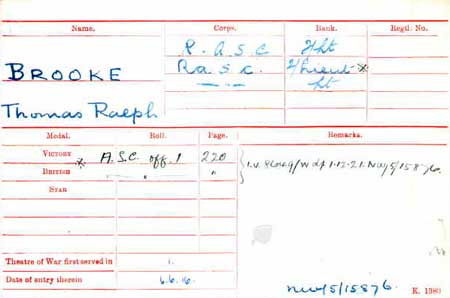 Name. Corps. Rank. Regtl. No.
R. A S C 2/Lt
BROOKE R.A.S.C. 2/Lieut *
Thomas Ralph Lt
Medal. Roll. Page. Remarks.
VICTORY * A.S.C. off. 1 220
BRITISH " "
STAR
Theatre of War first served in 1.
Date of entry therein 6.6.16.
NW/5/15876. K. 1380